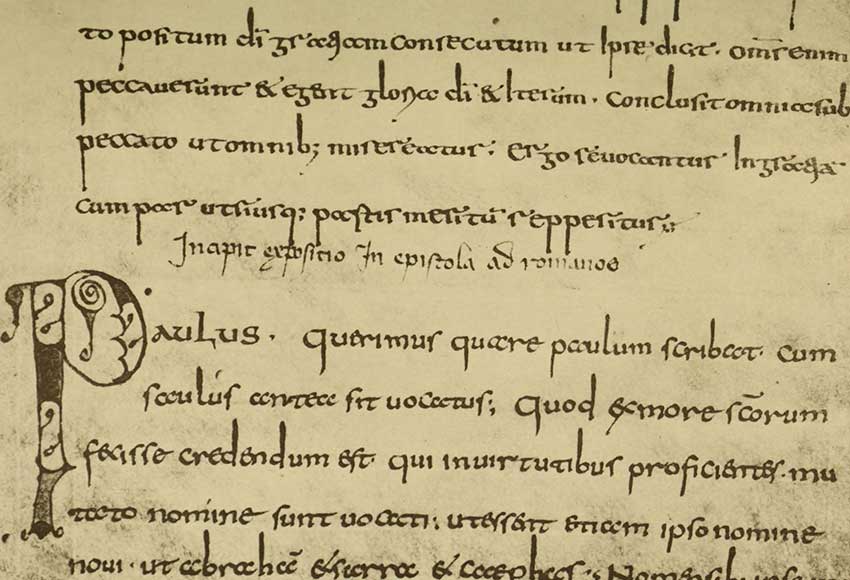 to positum dī consecutum ut Ipse dicit. Omēs enim
peccauerunt & egent gloria dī & Iterum. Conclusit omnia sub
peccato ut omnib; misereatur; Ergo uocantur In
cum pace
Incipit expositio In epistola ad romanos
Paulus. Querimus quare paulum scribat. Cum
saulus antea sit uocatus; Quod ex more scōrum
fecisse credendum est. qui in uirtutibus proficientes. mu
tato nomine sunt uocati; ut essent etiam ipso nomine
noui. ut abrahā & sarra & cephas;